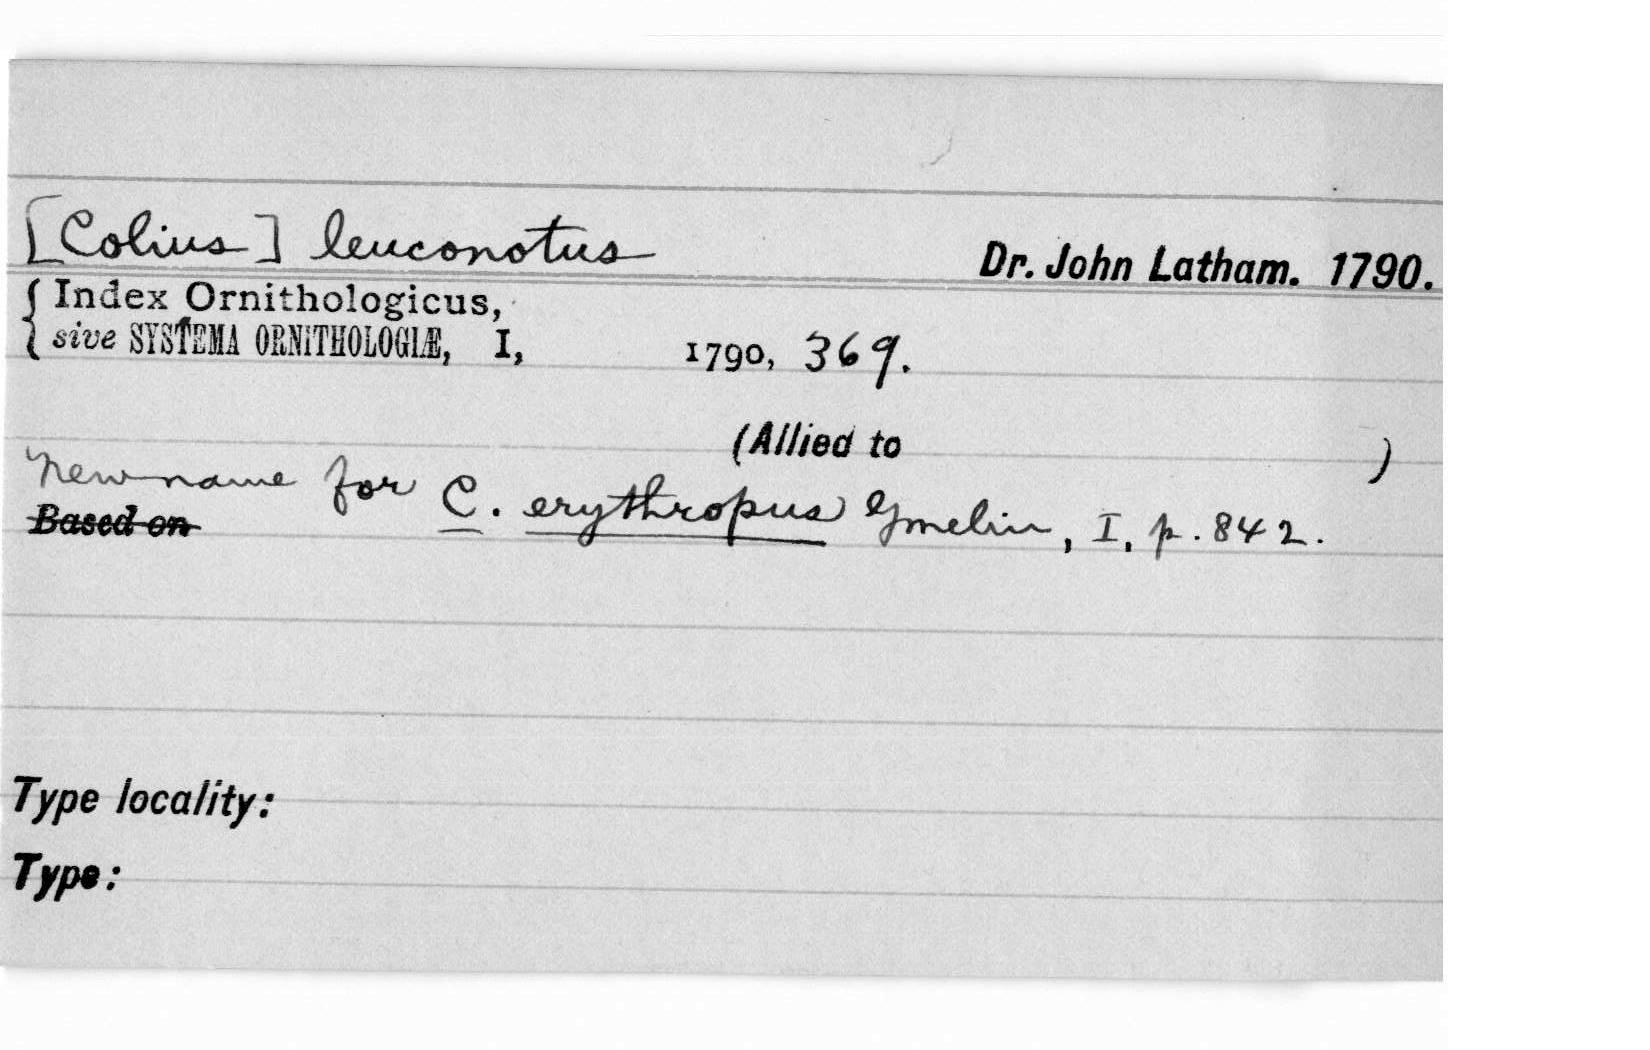 [Colius] leuconotus Dr. John Latham. 1790.
Index Ornithologicus,
sive SYSTEMA ORNITHOLOGIÆ, I, 1790, 369.
(Allied to )
New name for C. erythropus Gmelin, I, p. 842.
Based on
Type locality:
Type: